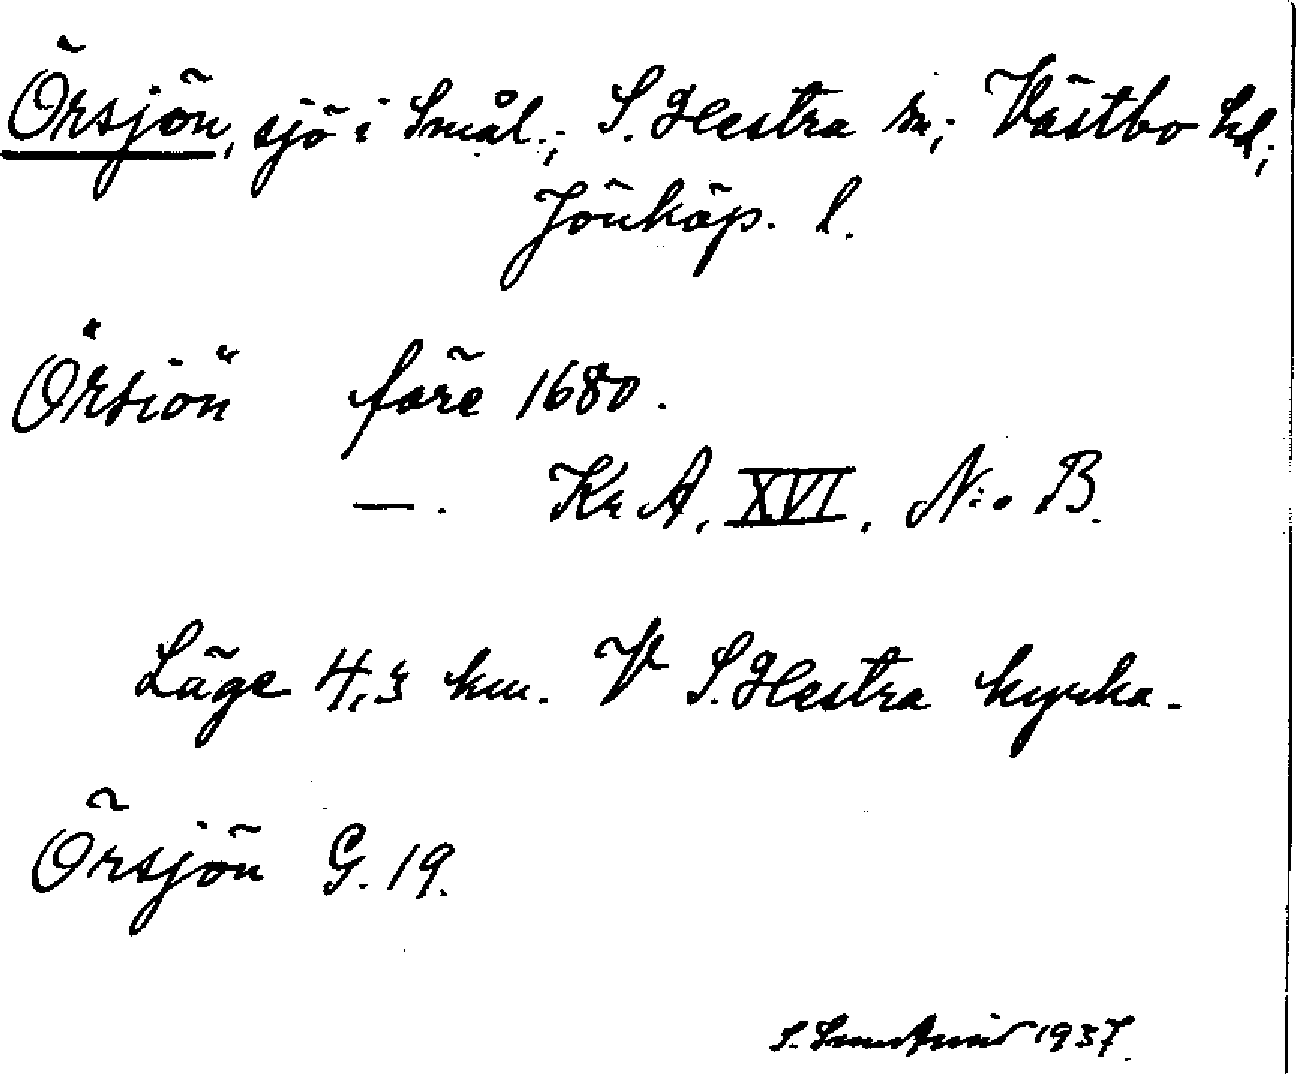 Örsjön, sjö i Smål.; S. Hestra sn; Västbo hd;
Jönköp. l.
Örsiön före 1680.
— . Kr A, XVI, N:o B.
Läge 4,3 km. V S. Hestra kyrka.
Örsjön G. 19.
S. 1937.